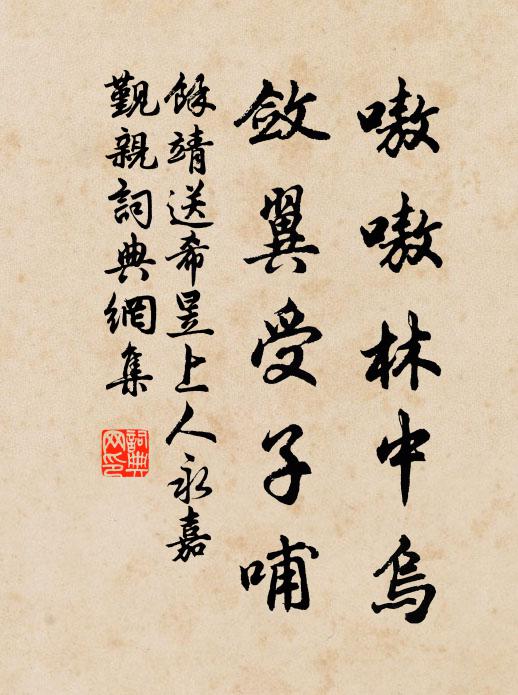 嗷嗷林中烏
斂翼受子哺
餘靖送希昱上人永嘉
覲親詞典網集
詞典
网印